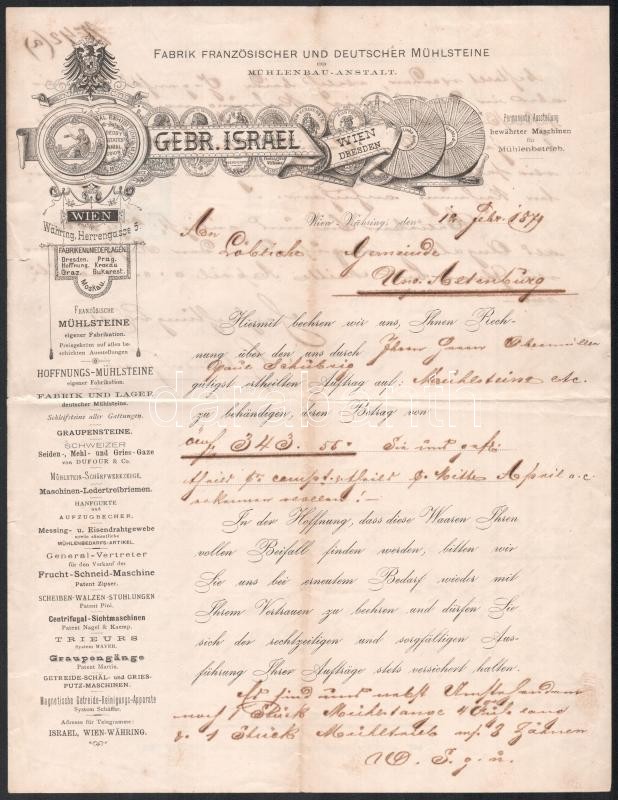 No 42 (a)
FABRIK FRANZÖSISCHER UND DEUTSCHER MÜHLSTEINE
UND
MÜHLENBAU-ANSTALT.
GEBR. ISRAEL
WIEN
&
DRESDEN
Permanente Ausstellung
bewährter Maschinen
für
Mühlenbetrieb.
WIEN
Währing, Herrengasse 5.
FABRIKEN & NIEDERLAGEN:
Dresden. Prag.
Hoffnung. Krakau
Graz. Bukarest.
Moskau.
Wien-Währing, den 12 Febr. 1879
An
Löbliche Gemeinde
Ung. Altenburg
FRANZÖSISCHE
MÜHLSTEINE
eigener Fabrikation.
Preisgekrönt auf allen be-
schickten Ausstellungen
HOFFNUNGS-MÜHLSTEINE
eigener Fabrikation.
FABRIK UND LAGER
deutscher Mühlsteine.
Schleifsteine aller Gattungen.
GRAUPENSTEINE.
SCHWEIZER
Seiden-, Mehl- und Gries-Gaze
von DUFOUR & Co.
MÜHLSTEIN-SCHÄRFWERKZEUGE.
Maschinen-Ledertreibriemen.
HANFGURTE
und
AUFZUGBECHER.
Messing- u. Eisendrahtgewebe
sowie sämmtliche
MÜHLENBEDARFS-ARTIKEL.
General-Vertreter
für den Verkauf der
Frucht-Schneid-Maschine
Patent Zipser.
SCHEIBEN-WALZEN-STÜHLUNGEN
Patent Pini.
Centrifugal-Sichtmaschinen
Patent Nagel & Kaemp.
TRIEURS
System MAYER.
Graupengänge
Patent Martin.
GETREIDE-SCHÄL- UND GRIES-
PUTZ-MASCHINEN.
Magnetische Getreide-Reinigungs-Apparate
System Schäffer.
Adresse für Telegramme:
ISRAEL, WIEN-WÄHRING.
Hiermit beehren wir uns, Ihnen Rech-
nung über den uns durch Ihren Herrn Obermüller
Paul Schubrig
gütigst ertheilten Auftrag auf: Mühlsteine etc.
zu behändigen, deren Betrag von
343. 55 Sie uns gefl.
theils pr compt. & theils p. Mitte April a. c.
wollen! –
In der Hoffnung, dass diese Waaren Ihren
vollen Beifall finden werden, bitten wir
Sie uns bei erneutem Bedarf wieder mit
Ihrem Vertrauen zu beehren und dürfen Sie
sich der rechtzeitigen und sorgfältigen Aus-
führung Ihrer Aufträge stets versichert halten.
noch 1 Stück 4 Fuß lang
& 1 Stück mit 3 Zähnen
W. S. g. u.
darabanth